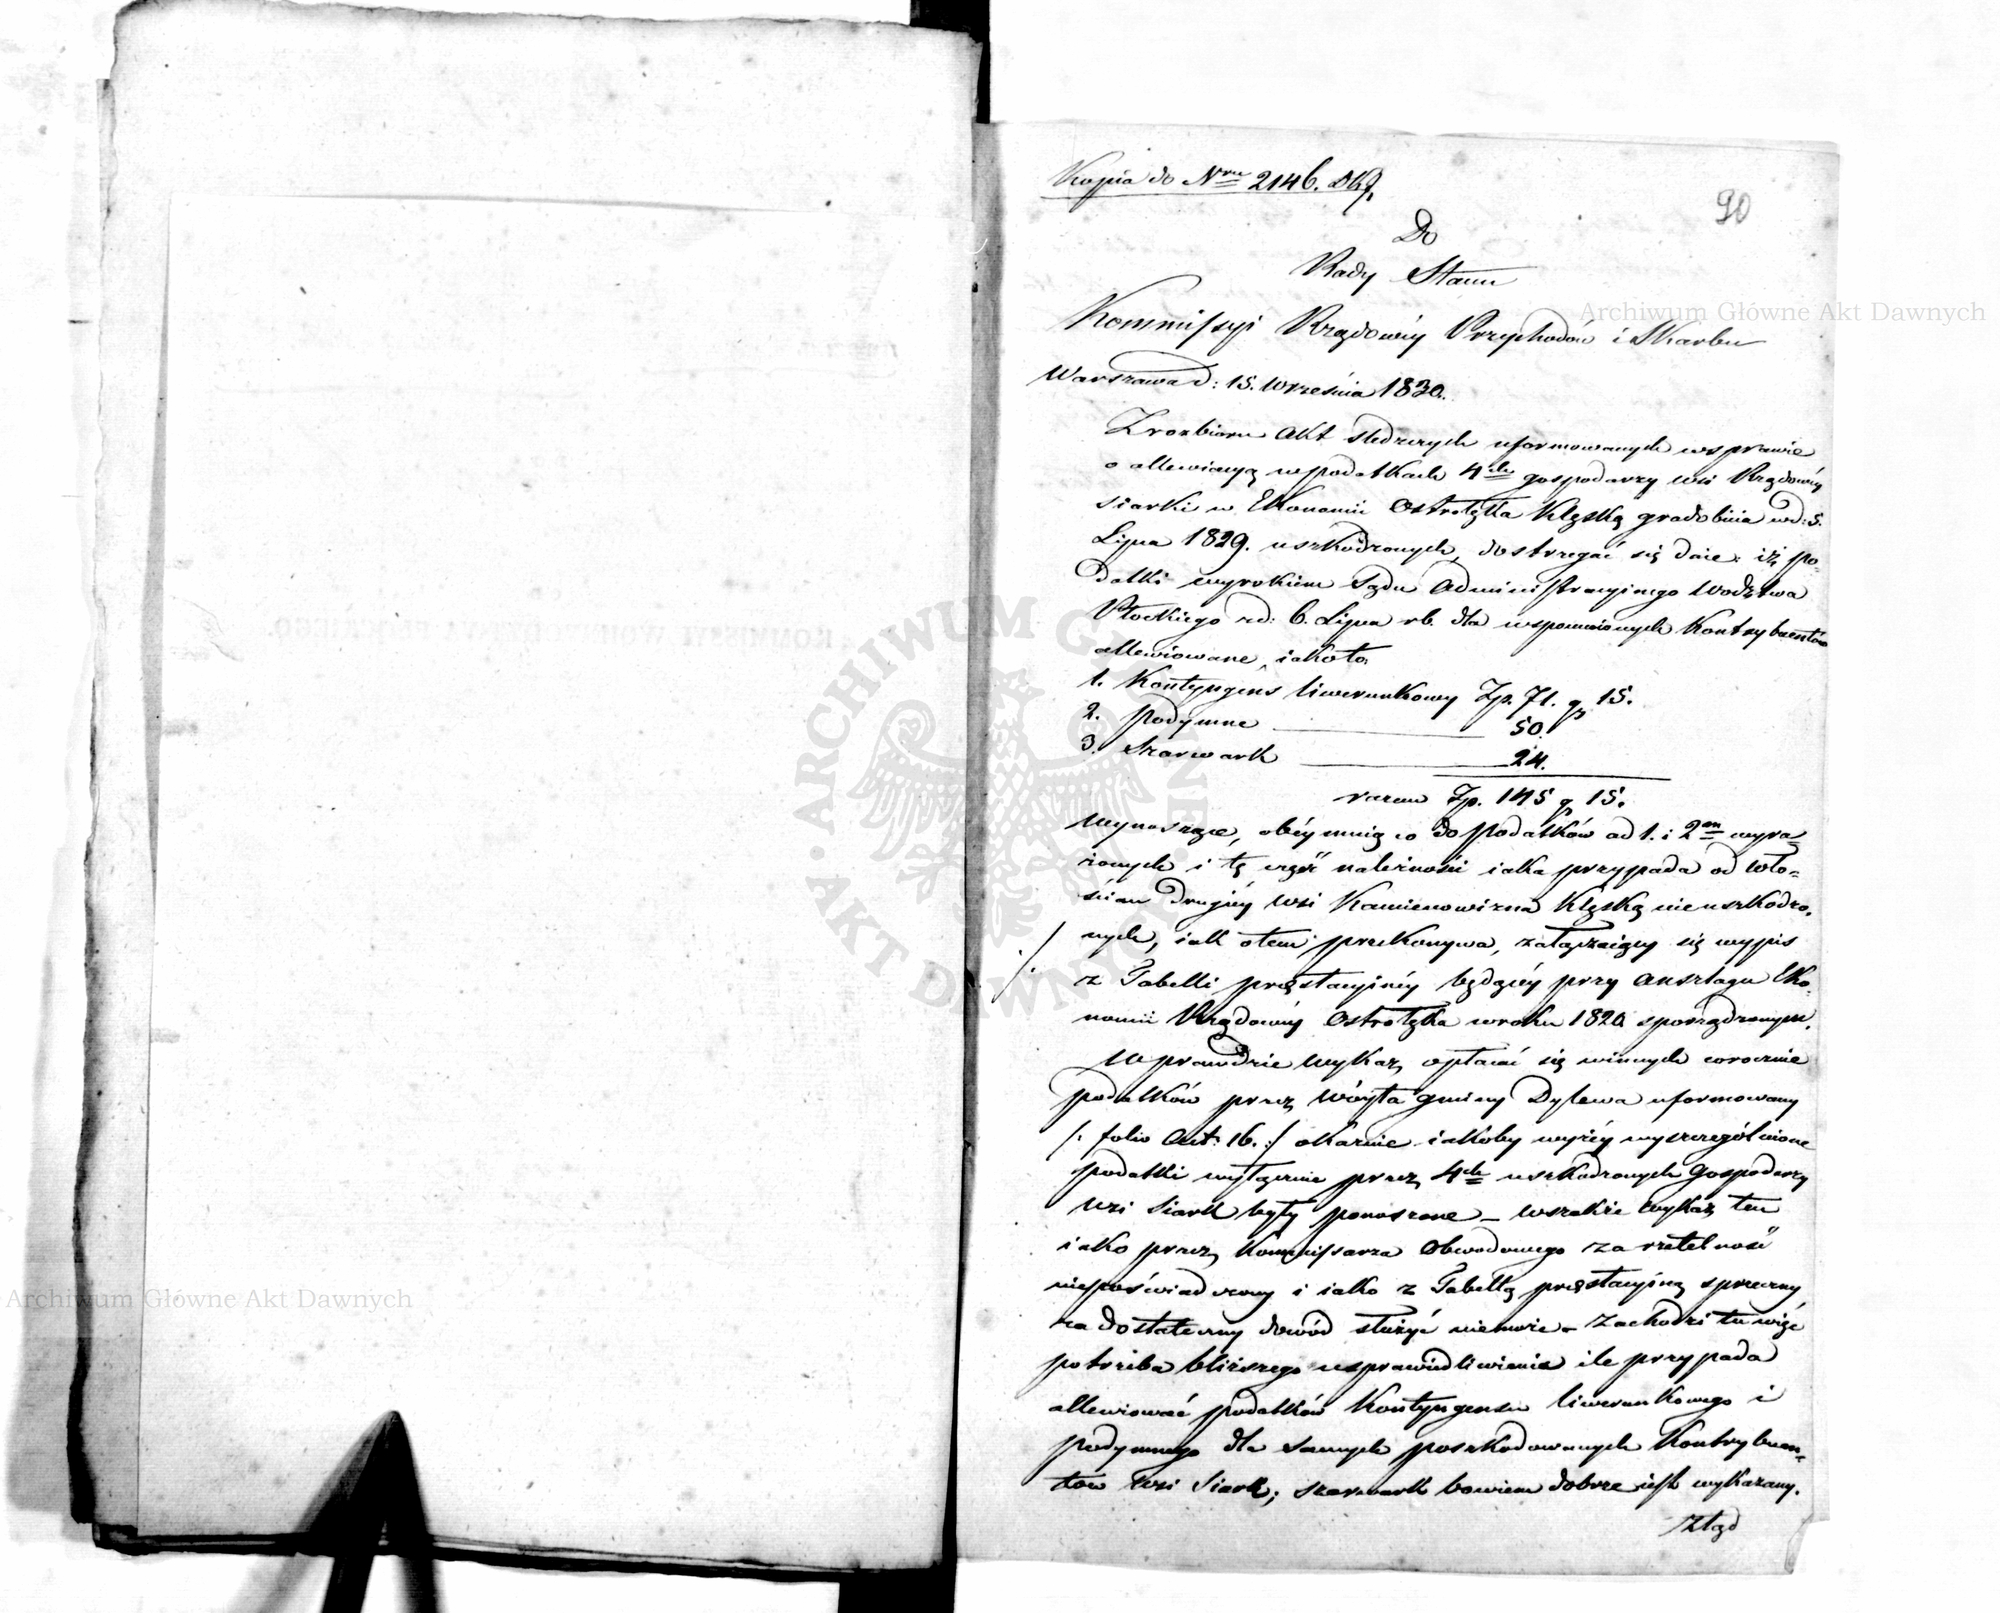 Kopia do Nru 2146. DKP.
90
Do
Rady Stanu
Kommissyi Rządowéy Przychodów i Skarbu
Warszawa d: 15. Września 1830.
Z rozbioru Akt śledczych uformowanych w sprawie
o allewiacyą w podatkach 4ch gospodarzy wsi Rządowéy
Siarki w Ekonomii Ostrołęka klęską gradobicia w d: 5.
Lipca 1829. uszkodzonych, dostrzegać się daie: iż po-
datki wyrokiem Sądu Administracyinego Wodztwa
Płockiego z d: 6. Lipca rb. dla wspomnionych Kontrybuentów
allewiowane, iako to.
1. Kontyngens liwerunkowy Zp. 71. g 15.
2. podymne 50.
3. Szarwark 24.
razem Zp. 145 g 15.
wynoszące, obéymuią co do podatków ad 1. i 2m wyra-
żonych i tę część należności iaka przypada od wło-
ścian drugiéy wsi Kamienowizna klęską nieuszkodzo-
nych, iak o tem przekonywa, załączaiący się wypis
z Tabelli prestacyinéy będącéy przy Anszlagu Eko-
nomii Rządowéy Ostrołęka w roku 1820 sporządzonym.
Wprawdzie wykaz opłacać się winnych corocznie
podatków przez Wóyta gminy Dylewa uformowany
/: folio Act: 16. :/ okazuie iakoby wyżéy wyszczególnione
podatki wyłącznie przez 4ch uszkodzonych Gospodarzy
wsi Siark były ponoszone – wszakże wykaz ten
iako przez Kommissarza Obwodowego za rzetelność
niepoświadczony i iako z Tabellą prestacyiną sprzeczny
za dostateczny dowód służyć niemoże – Zachodzi tu więc
potrzeba bliższego usprawiedliwienia ile przypada
allewiować podatków Kontyngensu liwerunkowego i
podymnego dla samych poszkodowanych Kontrybuen-
tów wsi Siark; szarwark bowiem dobrze iest wykazany.
Ztąd
Archiwum Główne Akt Dawnych
Archiwum Główne Akt Dawnych
ARCHIWUM GŁÓWNE AKT DAWNYCH